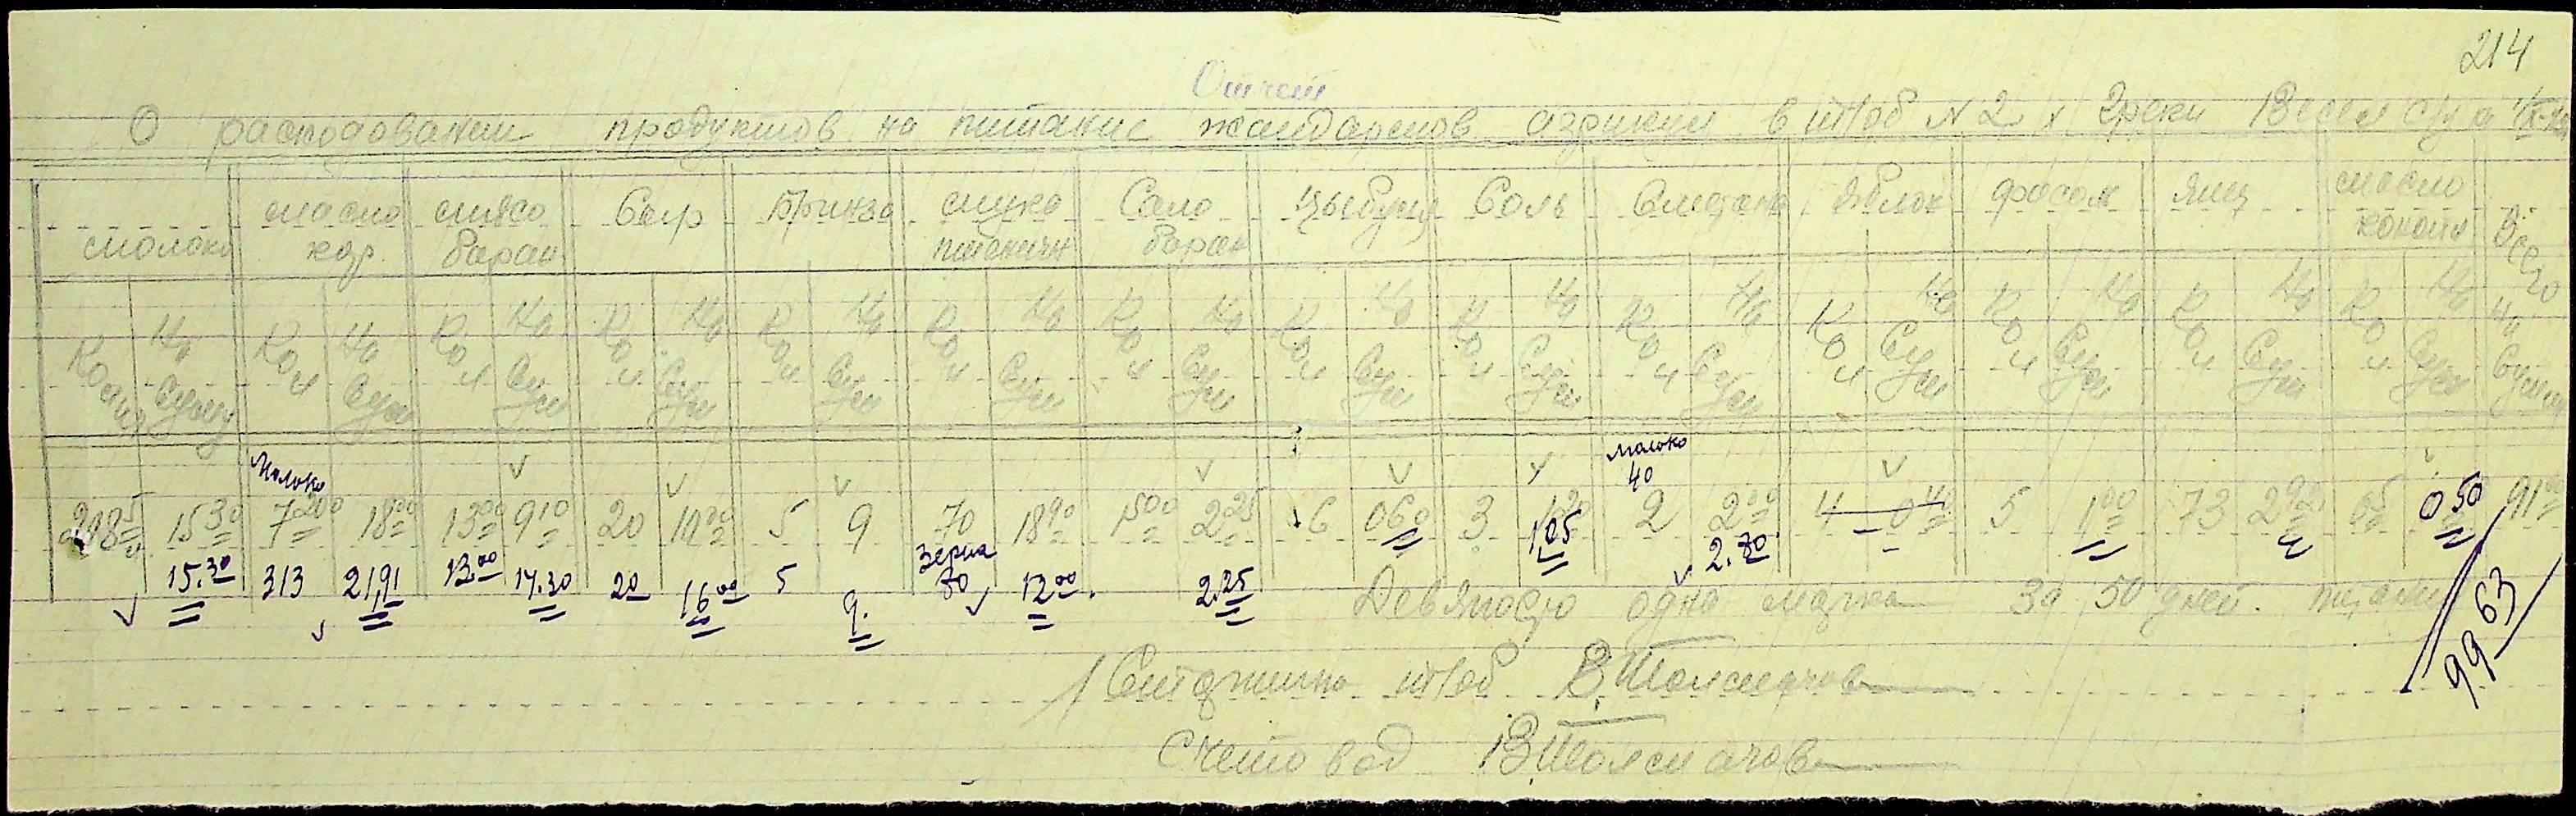 214
Отчет
О расходовании продуктов на питание жандармов в штаб N 2 х Греки с/у
молоко масло кор. мясо баран Сыр Брынза мука пшеничн Сало баран Цыбуля Соль Сметана яблок фасол яиц масло конопл Всего на сумму
Колич На сумму Кол На Сум Кол На Сум Кол На Сум Кол На Сум Кол На Сум Кол На Сум Кол На Сум Кол На Сум Кол На Сум Кол На Сум Кол На Сум Кол На Сум Кол На Сум
Молоко молоко 40
218 5 15 30 7 200 18 00 13 00 9 10 20 5 9 70 18 90 1500 2 25 6 060 3 1 20 2 2 00 4 0 40 5 1 00 73 2 92 05 0 50 91
1,05 Зерна 2.80
15.30 313 21,91 13.00 14.30 20 16 00 5 9. 80 12 00. 2.25
Девяносто одна марка за 50 дней.
99 63
штаб В Толмачов
Счетовод В Толмачов